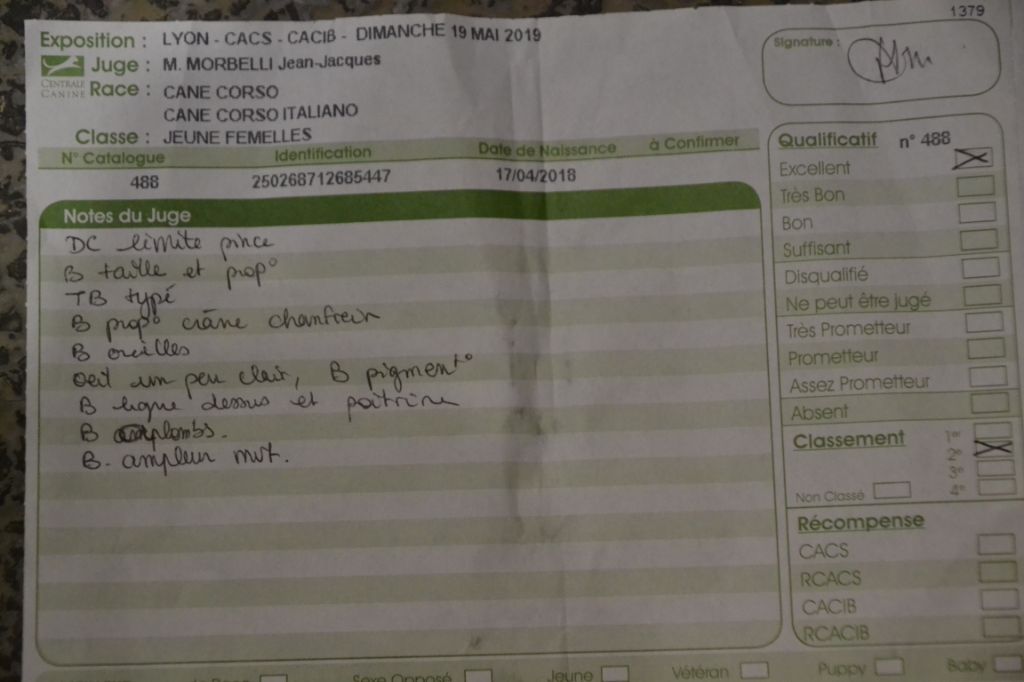 1379
Exposition : LYON - CACS - CACIB - DIMANCHE 19 MAI 2019
Signature :
CENTRALE CANINE
Juge : M. MORBELLI Jean-Jacques
Race : CANE CORSO
CANE CORSO ITALIANO
Classe : JEUNE FEMELLES
N° Catalogue Identification Date de Naissance à Confirmer
488 250268712685447 17/04/2018
Notes du Juge
DC limite pince
B taille et prop°
TB typé
B prop° crâne chanfrein
B oreilles
Oeil un peu clair, B pigment°
B ligne dessus et poitrine
B aplombs.
B. ampleur mvt.
Qualificatif n° 488
Excellent
Très Bon
Bon
Suffisant
Disqualifié
Ne peut être jugé
Très Prometteur
Prometteur
Assez Prometteur
Absent
Classement
1er
2°
3°
4°
Non Classé
Récompense
CACS
RCACS
CACIB
RCACIB
Sexe Opposé Jeune Vétéran Puppy Baby